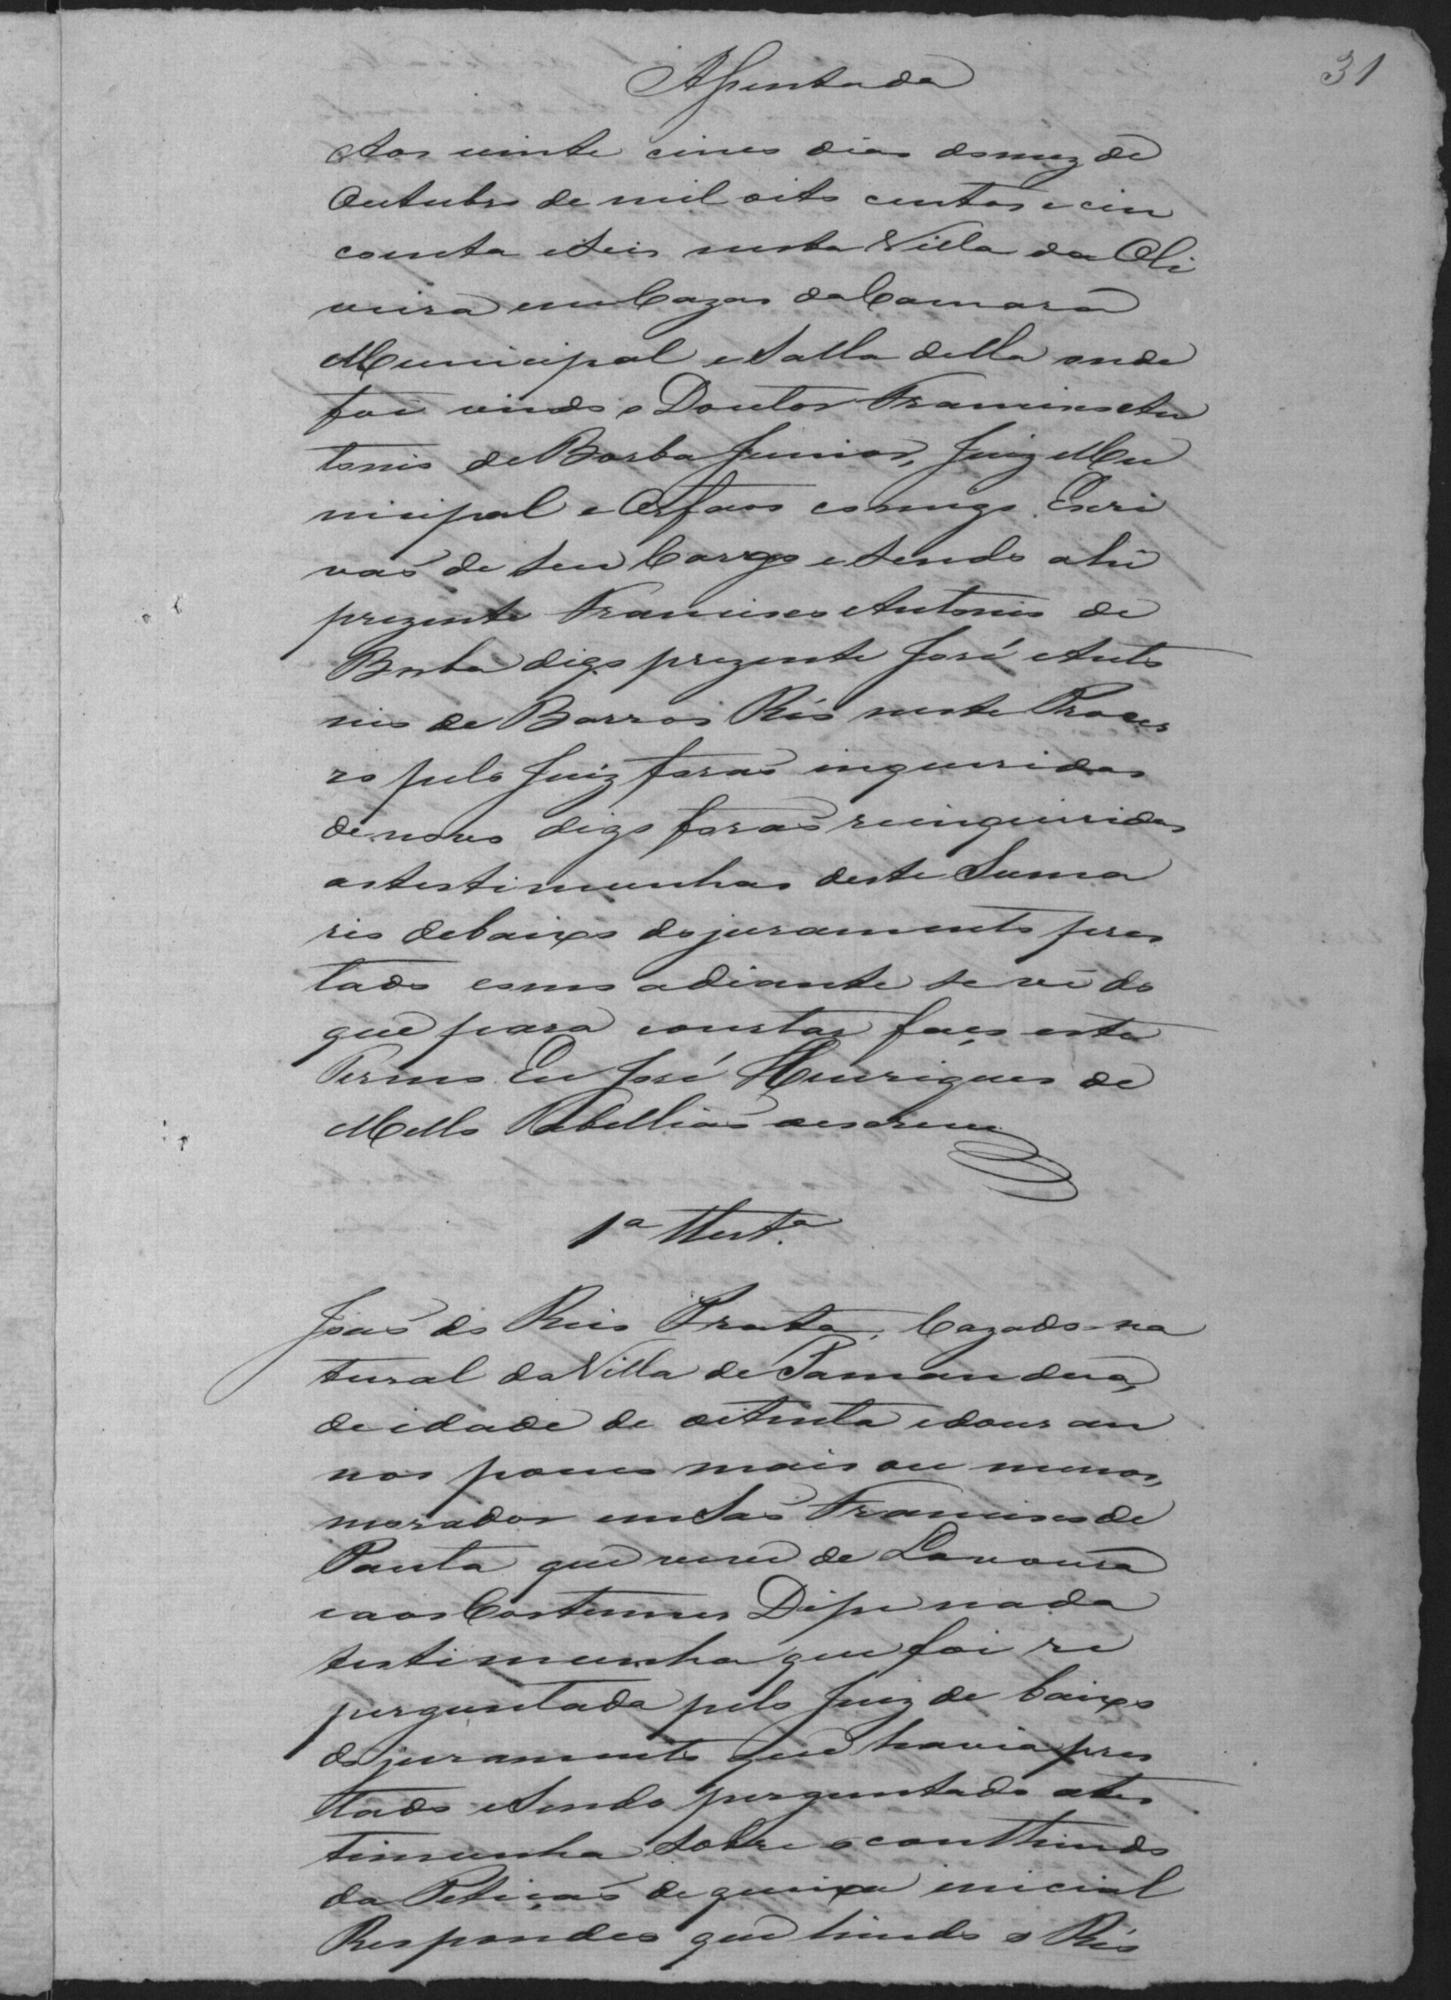 31
Assentada
Aos vinte cinco dias domez de
Outubro de mil oito centos e cin
coenta eSeis nesta Villa da Oli
veira em Cazas da Camara
Municipal eSalla della onde
foi vindo o Doutor Francisco An
tonio de Borba Junior, Juiz Mu
nicipal e Orfaos comigo Escri
vaõ de seu Cargo eSendo ahi
prezente Francisco Antonio de
Borba digo prezente José Anto
nio de Barros Réo neste Proces
so pelo Juiz foraõ inqueridas
de novo digo foraõ reinqueridas
astestimunhas deste Suma
rio debaixo dojuramento pres
tado como adiante se vê do
que para constar faço este
Termo. Eu José Henriques de
Mello Tabelliaõ oescrevi
1ª Test.ª
Joaõ do Reis Prata, Cazado na
tural da Villa de Tamandua,
de idade de oitenta edous an
nos pouco mais ou menos,
morador em Saõ Francisco de
Paula que vive de Lavoura
eaos Costumes Disse nada
testimunha que foi re
perguntada pelo Juiz de baixo
dojuramento que havia pres
tado eSendo perguntado ates
timunha Sobre o conthiudo
da Petiçaõ de queixa inicial
Respondeo que hindo o Réo